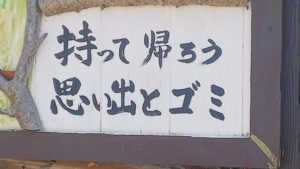 持って帰ろう
思い出とゴミ